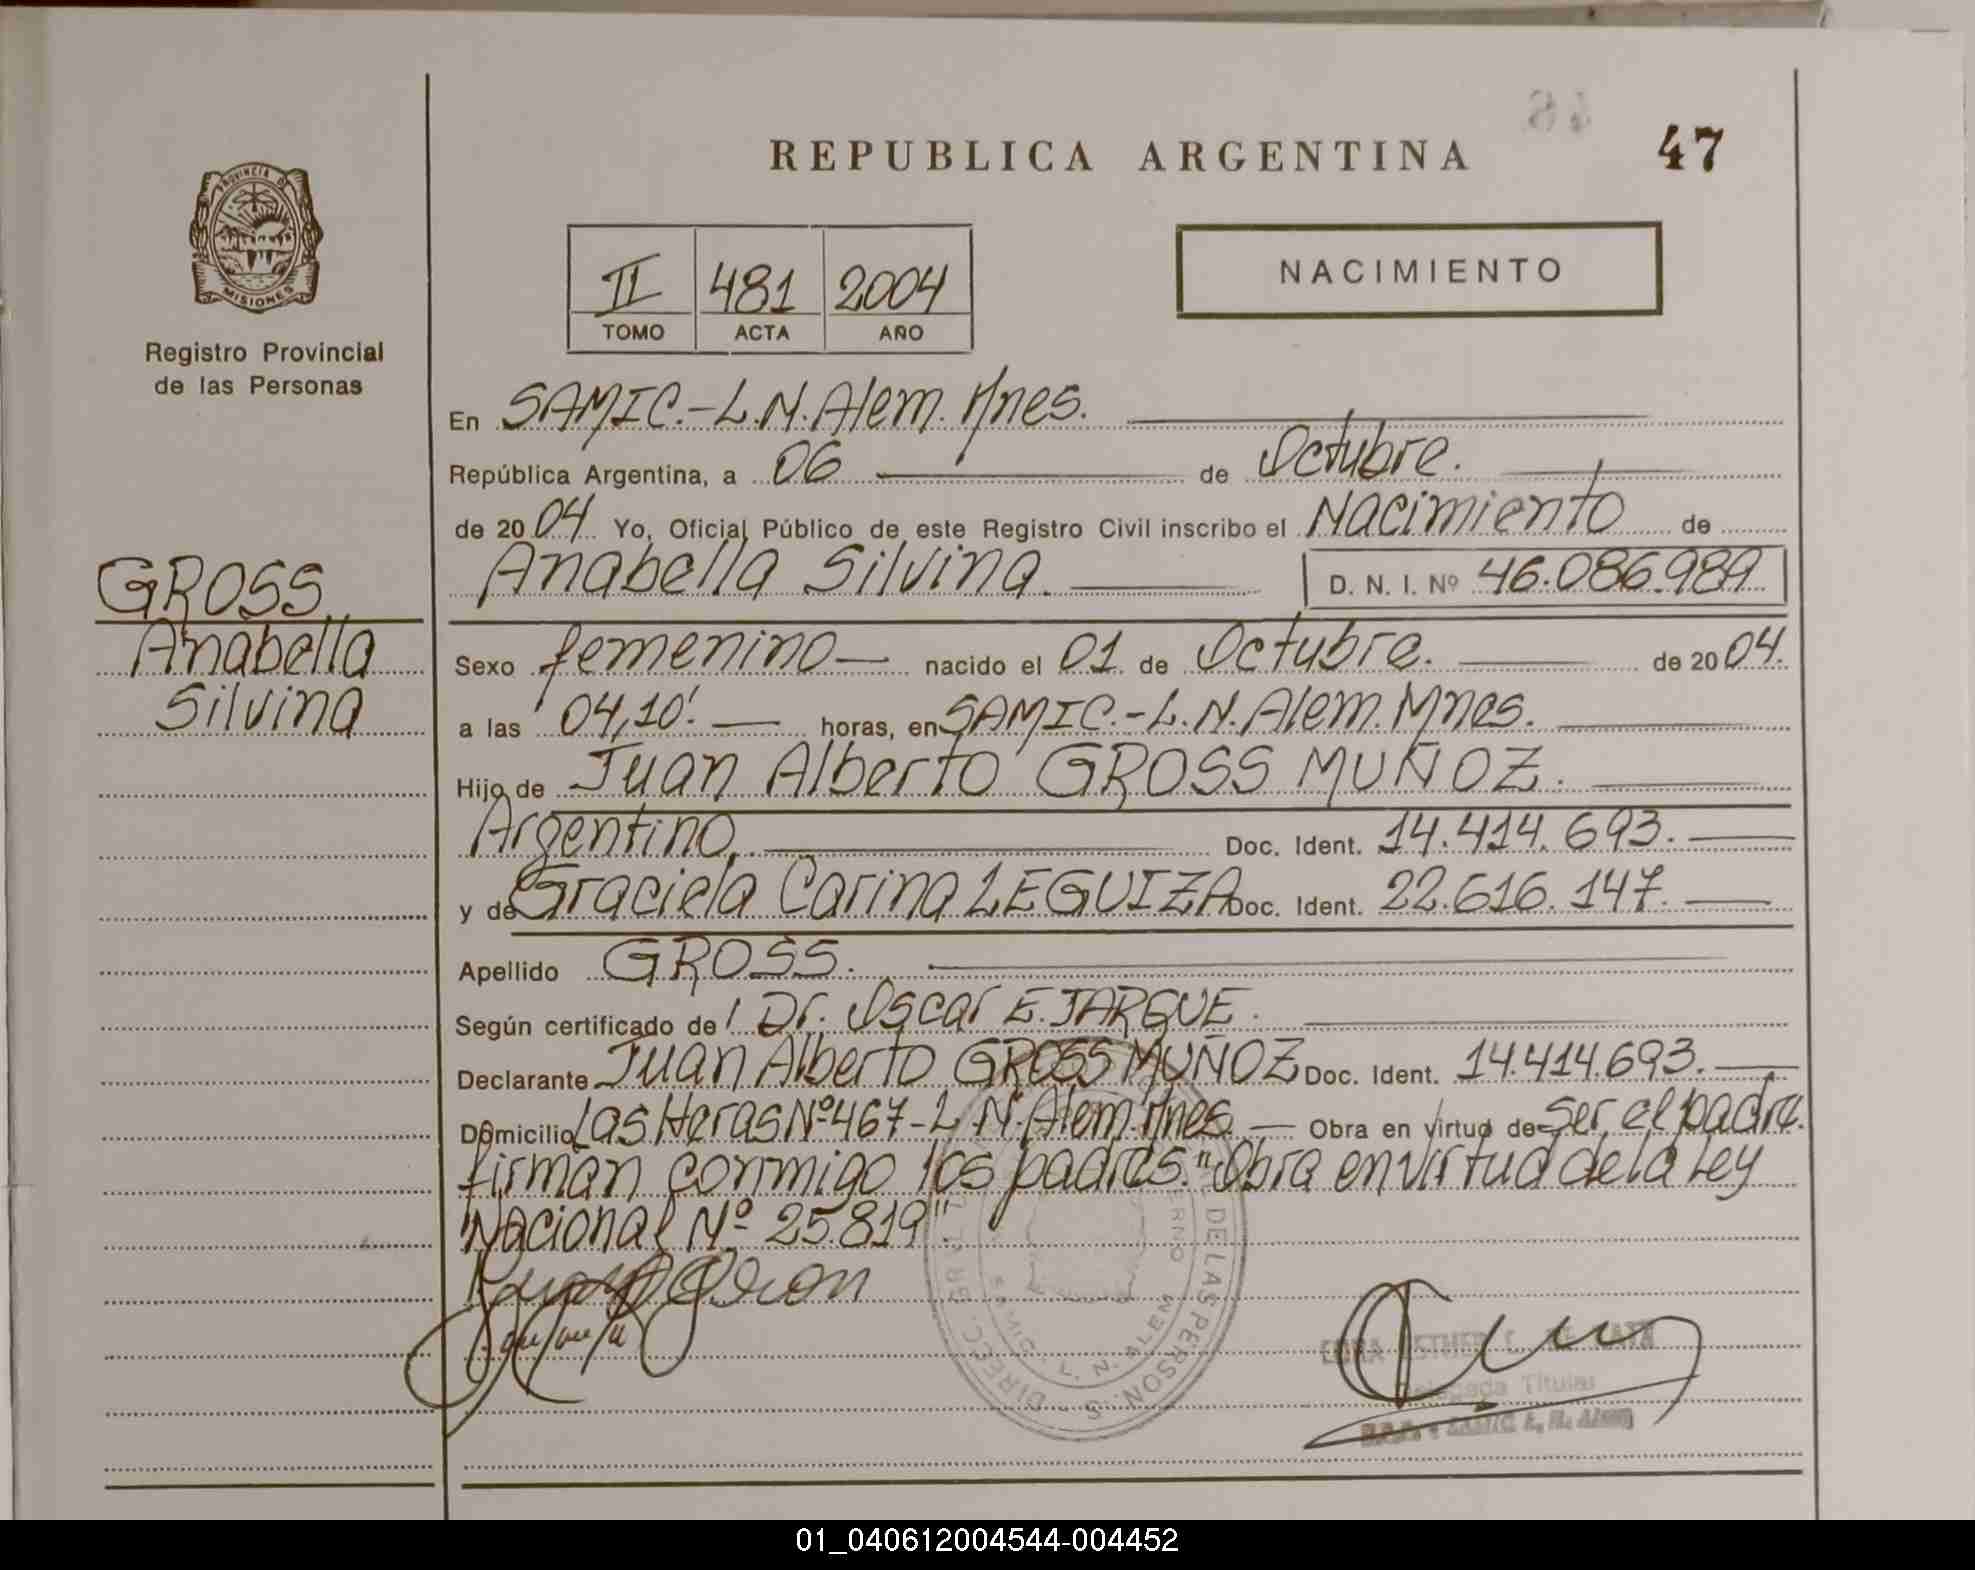 48
47
REPUBLICA ARGENTINA
PROVINCIA DE
MISIONES
Registro Provincial
de las Personas
II 481 2004
TOMO ACTA AÑO
NACIMIENTO
En SAMIC.-L.N.Alem. Mnes.
República Argentina, a 06 de Octubre.
de 2004 Yo, Oficial Público de este Registro Civil inscribo el Nacimiento de
Anabella Silvina. D. N. I. Nº 46.086.989
GROSS
Anabella
Silvina
Sexo femenino nacido el 01 de Octubre. de 2004.
a las 04,10'. horas, en SAMIC.-L.N.Alem. Mnes.
Hijo de Juan Alberto GROSS MUÑOZ.
Argentino. Doc. Ident. 14.414.693.
y de Graciela Carina LEGUIZA Doc. Ident. 22.616.147.
Apellido GROSS.
Según certificado de Dr. Oscar E. JARQUE.
Declarante Juan Alberto GROSS MUÑOZ Doc. Ident. 14.414.693.
Domicilio Las Heras Nº 467-L.N.Alem. Mnes. Obra en virtud de ser el padre.
firman conmigo los padres. "Obra en virtud de la Ley
Nacional Nº 25.819".
DIRECC. DE LAS PERSONAS
SAMIC. L. N. ALEM
ESTHER C. DE
Delegada Titular
01_040612004544-004452